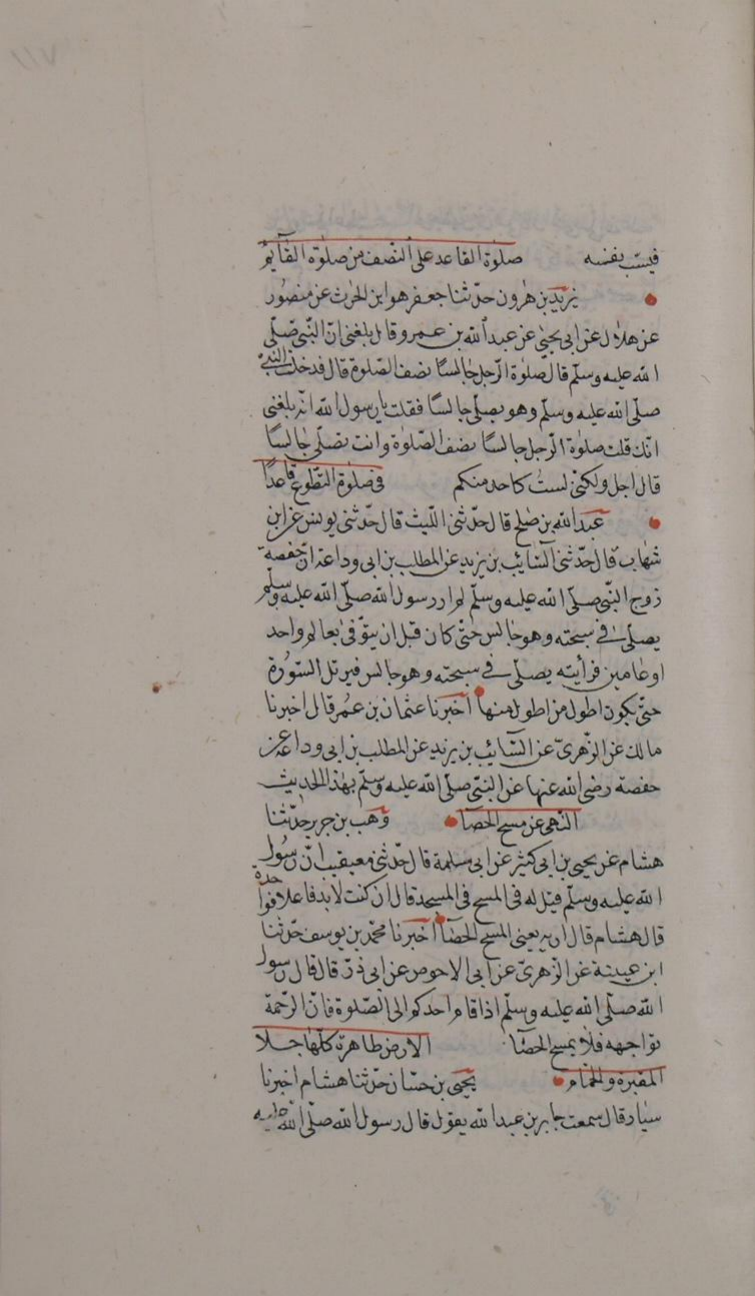 فيسب بنفسه صلوة القاعد على النصف من صلوة القايم
يزيد بن هرون حدثنا جعفر هو ابن الحرث عن منصور
عن هلال عن ابى يحيى عن عبد الله بن عمرو قال بلغنى ان النبى صلى
الله عليه وسلم قال صلوة الرجل جالسا نصف الصلوة قال فدخلت على النبى
صلى الله عليه وسلم وهو يصلى جالسا فقلت يا رسول الله انه بلغنى
انك قلت صلوة الرجل جالسا نصف الصلوة وانت تصلى جالسا
قال اجل ولكنى لست كاحد منكم فى صلوة التطوع قاعدا
عبد الله بن صلح قال حدثنى الليث قال حدثنى يونس عن ابن
شهاب قال حدثنى السايب بن يزيد عن المطلب بن ابى وداعة ان حفصة
زوج النبى صلى الله عليه وسلم لم ار رسول الله صلى الله عليه وسلم
يصلى فى سبحته وهو جالس حتى كان قبل ان يتوفى بعام واحد
او عامين فرأيته يصلى فى سبحته وهو جالس فيرتل السورة
حتى يكون اطول من اطول منها اخبرنا عثمان بن عمر قال اخبرنا
مالك عن الزهرى عن السايب بن يزيد عن المطلب بن ابى وداعة عن
حفصة رضى الله عنها عن النبى صلى الله عليه وسلم بهذا الحديث
النهى عن مسح الحصا وهب بن جرير حدثنا
هشام عن يحيى بن ابى كثير عن ابى سلمة قال حدثنى معيقيب ان رسول
الله عليه وسلم قيل له فى المسح فى المسجد قال ان كنت لا بد فاعلا فواحدة
قال هشام قال اراه يعنى المسح الحصا اخبرنا محمد بن يوسف حدثنا
ابن عيينة عن الزهرى عن ابى الاحوص عن ابى ذر قال قال رسول
الله صلى الله عليه وسلم اذا قام احدكم الى الصلوة فان الرحمة
تواجهه فلا يمسح الحصا الارض طاهرة كلها خلا
المقبرة والحمام يحيى بن حسان حدثنا هشام اخبرنا
سيار قال سمعت جابر بن عبد الله يقول قال رسول الله صلى الله عليه